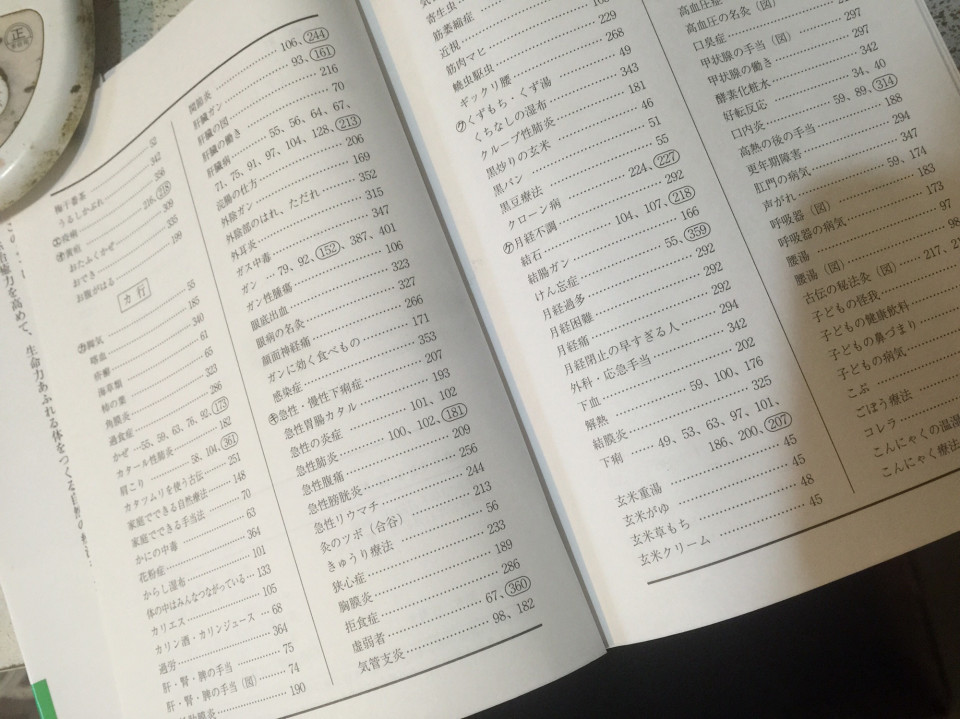 梅干番茶 52
うるしかぶれ 342
㋓疫病 356
㋔黄疸 216, 218
おたふくかぜ 309
おでき 335
お腹がはる 199
カ行
㋕脚気 55
喀血 185
疥癬 340
海草類 61
柿の葉 65
角膜炎 323
過食症 286
かぜ …55, 59, 63, 76, 92, 173
カタール性肺炎 182
肩こり 58, 104, 361
カタツムリを使う古伝 251
家庭でできる自然療法 148
家庭でできる手当法 70
かにの中毒 63
花粉症 364
からし湿布 101
体の中はみんなつながっている… 133
カリエス 105
カリン酒・カリンジュース … 68
過労 364
肝・腎・脾の手当 75
肝・腎・脾の手当(図) 74
190
関節炎 106, 244
肝臓ガン 93, 161
肝臓の図 216
肝臓の働き 70
肝臓病 54, 55, 56, 64, 67,
71, 75, 91, 97, 104, 128, 213
浣腸の仕方 206
外陰ガン 169
外陰部のはれ、ただれ 352
外耳炎 315
ガス中毒 347
ガン 79, 92, 152, 387, 401
ガン性腫瘍 106
眼底出血 323
眼病の名灸 327
顔面神経痛 266
ガンに効く食べもの 171
感染症 353
㋖急性・慢性下痢症 207
急性胃腸カタル 193
急性の炎症 101, 102
急性肺炎 100, 102, 181
急性腹痛 209
急性膀胱炎 256
急性リウマチ 244
灸のツボ(合谷) 213
きゅうり療法 56
狭心症 233
胸膜炎 189
拒食症 286
虚弱者 67, 360
気管支炎 98, 182
寄生虫
筋萎縮症
近視
筋肉マヒ
蟯虫駆虫 229
ギックリ腰 268
㋗くずもち・くず湯 49
くちなしの湿布 343
クループ性肺炎
黒炒りの玄米 46
黒パン 51
黒豆療法 55
クローン病 224, 227
㋘月経不調 292
結石 104, 107, 218
結腸ガン 166
けん忘症 55, 359
月経過多 292
月経困難 292
月経痛 292
月経閉止の早すぎる人 294
外科・応急手当 342
下血 202
解熱 59, 100, 176
結膜炎 325
下痢 49, 53, 63, 97, 101,
186, 200, 207
玄米重湯 45
玄米がゆ 45
玄米草もち 48
玄米クリーム 45
高血圧症
高血圧の名灸(図)
口臭症
甲状腺の手当(図) 297
甲状腺の働き 297
酵素化粧水 342
好転反応 34, 40
口内炎 59, 89, 314
高熱の後の手当 188
更年期障害 294
肛門の病気 347
声がれ 59, 174
呼吸器(図) 183
呼吸器の病気 173
腰湯 97
腰湯(図) 98
古伝の秘法灸(図) 217,
子どもの怪我
子どもの健康飲料
子どもの鼻づまり
子どもの病気
こぶ
ごぼう療法
コレラ
こんにゃくの温湿
こんにゃく療法
治癒力を高めて、生命力あふれる体をつくる
正